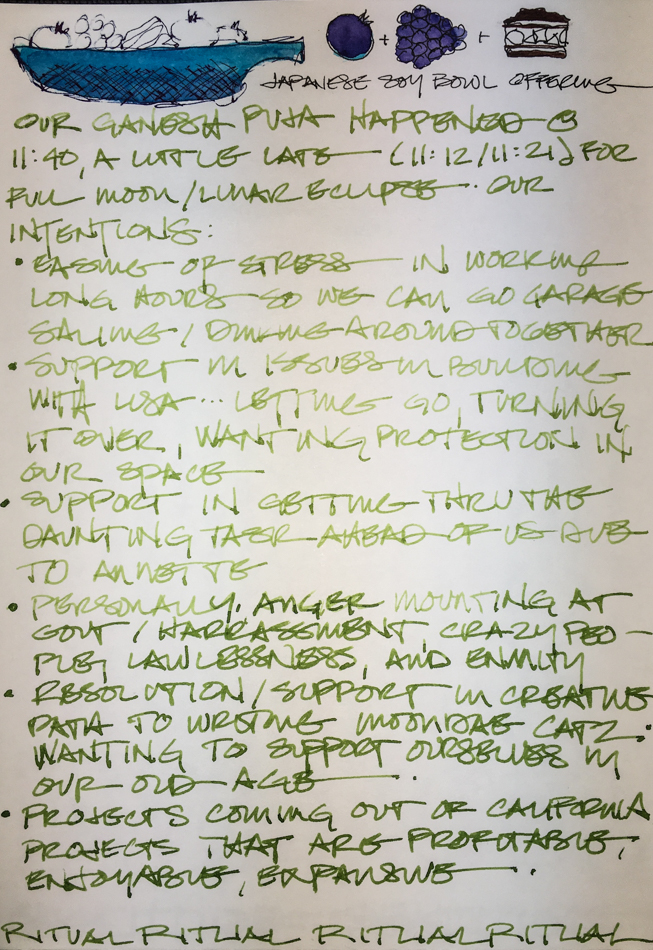 JAPANESE SOY BOWL OFFERING
OUR GANESH PUJA HAPPENED @
11:40, A LITTLE LATE (11:12/11:21) FOR
FULL MOON/LUNAR ECLIPSE. OUR
INTENTIONS:
• EASING OF STRESS IN WORKING
LONG HOURS SO WE CAN GO GARAGE
SALING/DINKING AROUND TOGETHER
• SUPPORT IN ISSUES IN BUILDING
WITH LISA... LETTING GO, TURNING
IT OVER, WANTING PROTECTION IN
OUR SPACE
• SUPPORT IN GETTING THRU THE
DAUNTING TASK AHEAD OF US DUE
TO ANNETTE
• PERSONALLY, ANGER MOUNTING AT
GOVT/HARRASSMENT CRAZY PEO-
PLE, LAWLESSNESS, AND ENMITY
• RESOLUTION/SUPPORT IN CREATIVE
PATH TO WRITING CATZ.
WANTING TO SUPPORT OURSELVES IN
OUR OLD AGE.
• PROJECTS COMING OUT OF CALIFORNIA
PROJECTS THAT ARE PROFITABLE,
ENJOYABLE, EXPANSIVE.
RITUAL RITUAL RITUAL RITUAL